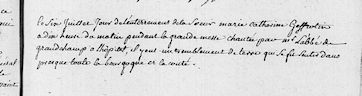 Le six Juillet Jour de l'enterrement de la Soeur marie catherine
a dix heure du matin pendant la grande messe chantée par mr L'abbé de
grandchamp a l'hopital, il y eut un tremblement de terre qui se fit sentir dans
presque toute la bourgogne et la